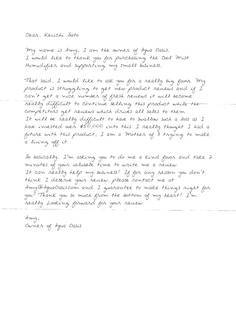 Dear. Keiichi Sato
My name is Amy, I am the owner of Agua Oasis.
I would like to thank you for purchasing the Cool Mist
Humidifier and supporting my small business.
That said, I would like to ask you for a really big favor. My
product is struggling to get new product reviews and if I
can't get a nice number of fresh reviews it will become
really difficult to continue selling this product while the
competitors get reviews which drives all sales to them.
It will be really difficult to have to swallow such a loss as I
have invested over $50,000 into this I really thought I had a
future with this product, I am a Mother of 3 trying to make
a living off it.
So basically, I'm asking you to do me a kind favor and take 2
minutes of your valuable time to write me a review.
It can really help my business! If for any reason you don't
think I deserve your review please contact me at
Amy@AguaOasis.com and I guarantee to make things right for
you! Thank you so much from the bottom of my heart! I'm
really looking forward for your review.
Amy,
Owner of Agua Oasis